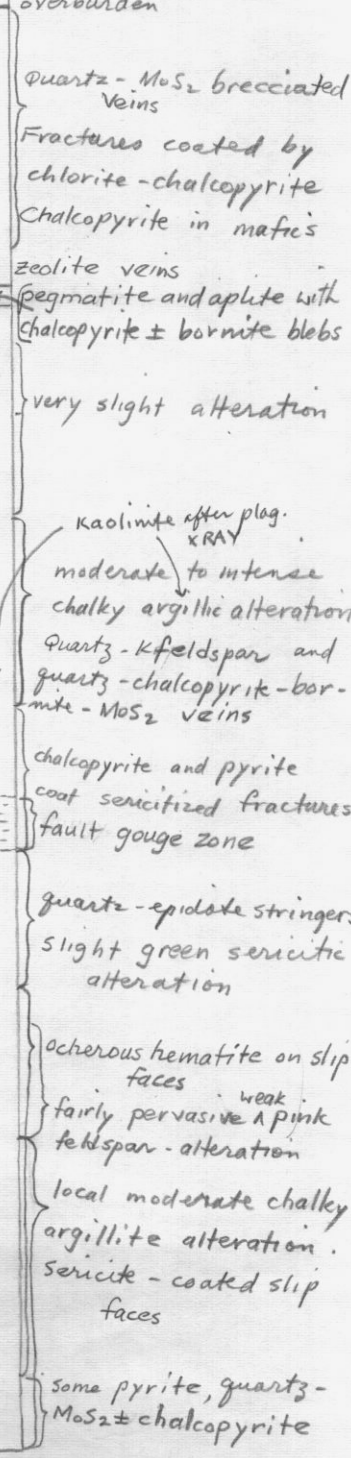 overburden
Quartz - MoS2 brecciated
Veins
Fractures coated by
chlorite - chalcopyrite
Chalcopyrite in mafics
zeolite veins
pegmatite and aplite with
chalcopyrite ± bornite blebs
very slight alteration
Kaolinite after plag.
XRAY
moderate to intense
chalky argillic alteration
Quartz - Kfeldspar and
quartz - chalcopyrite - bor-
nite - MoS2 veins
chalcopyrite and pyrite
coat sericitized fractures
fault gouge zone
quartz - epidote stringers
slight green sericitic
alteration
ocherous hematite on slip
faces
fairly pervasive ^ weak pink
feldspar - alteration
local moderate chalky
argillite alteration.
sericite - coated slip
faces
some pyrite, quartz -
MoS2 ± chalcopyrite